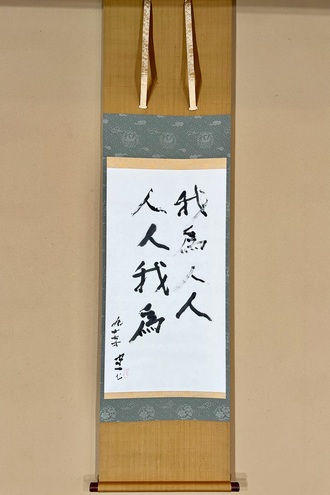 我為人人
人人我為